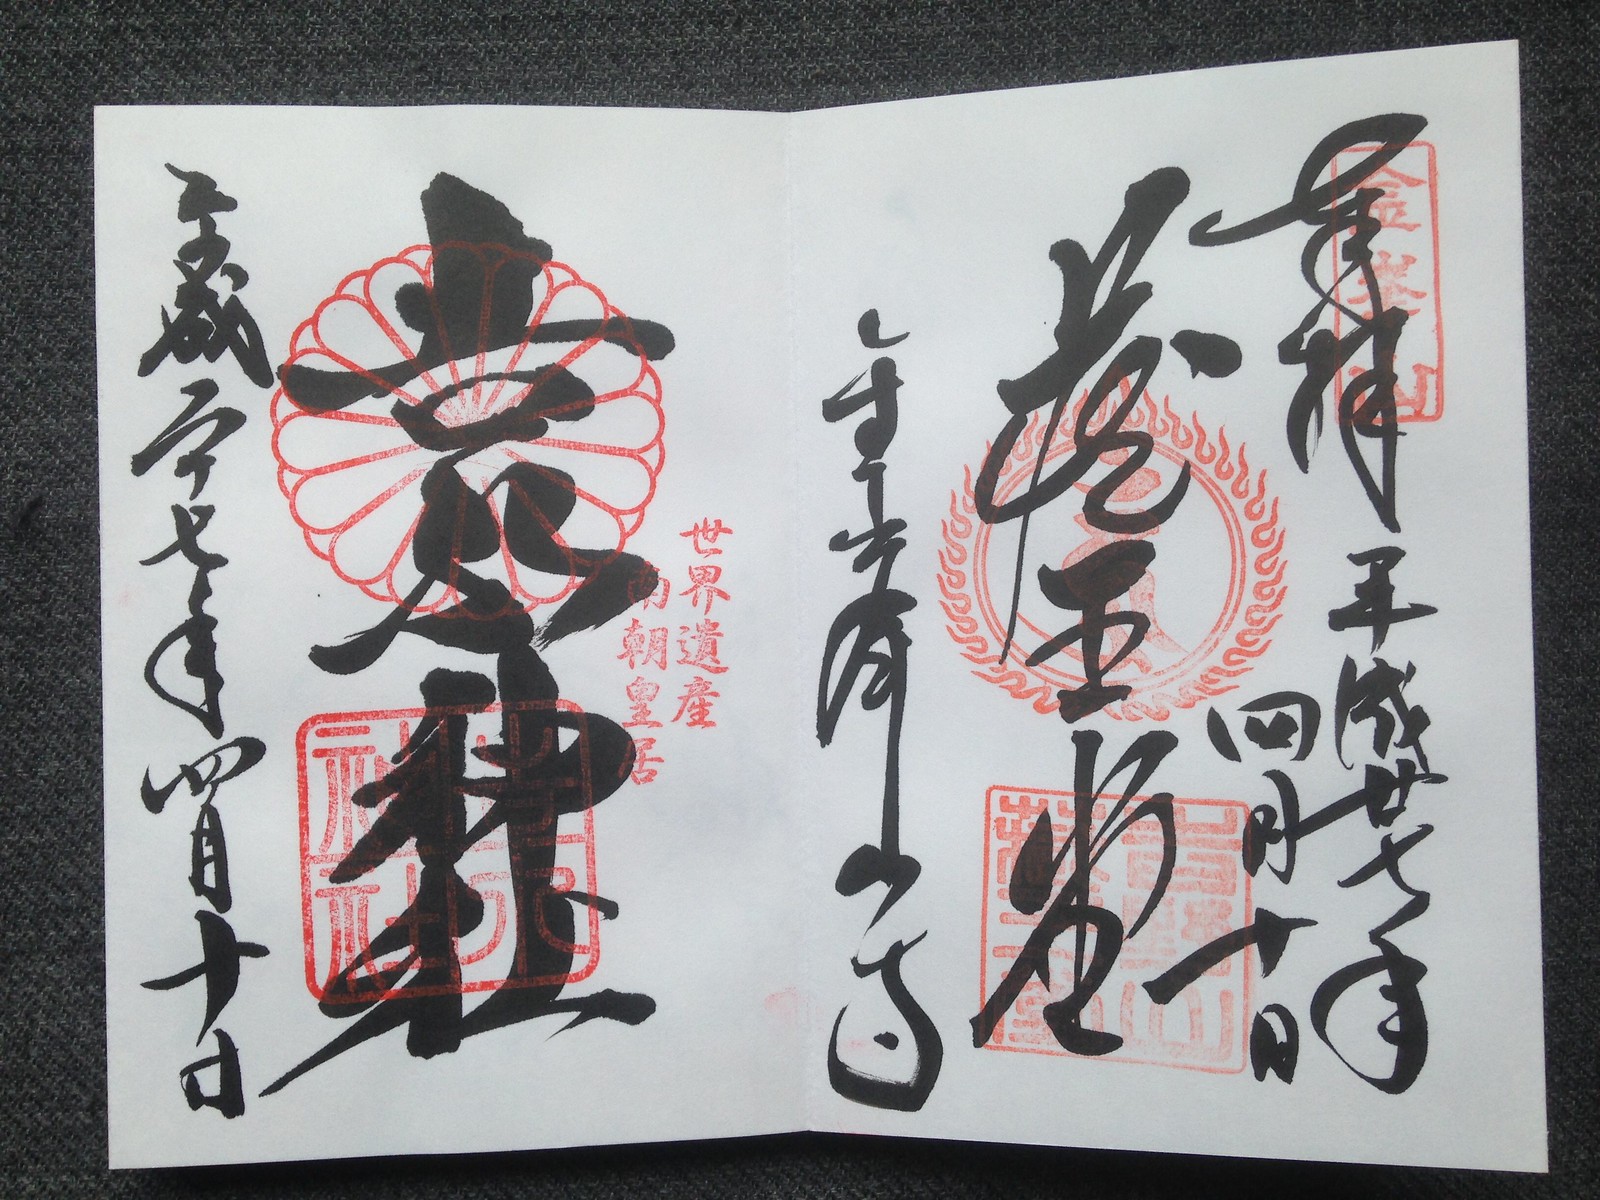 奉拝
金峯山
平成廿七年
四月十日
蔵王堂
吉野山
蔵王堂
金峯山寺
世界遺産
南朝皇居
吉水神社
吉水
神社
平成二十七年四月十日